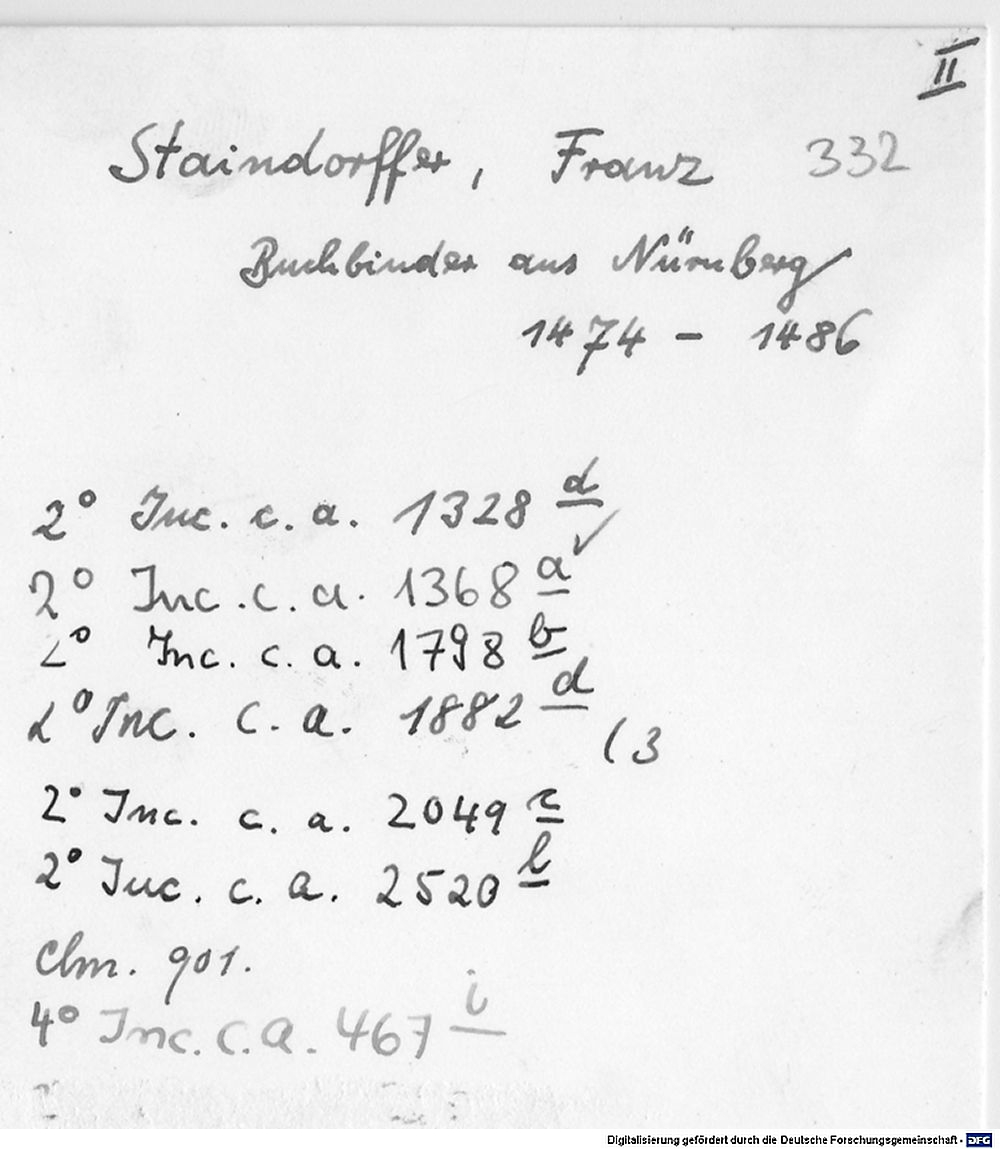 II
Staindorffer, Franz 332
Buchbinder aus Nürnberg
1474 - 1486
2° Inc. c. a. 1328 d
2° Inc. c. a. 1368 a ✓
2° Inc. c. a. 1798 b
2° Inc. c. a. 1882 d (3
2° Inc. c. a. 2049 c
2° Inc. c. a. 2520 l
Clm. 901.
4° Inc. c. a. 467 i
Digitalisierung gefördert durch die Deutsche Forschungsgemeinschaft - DFG